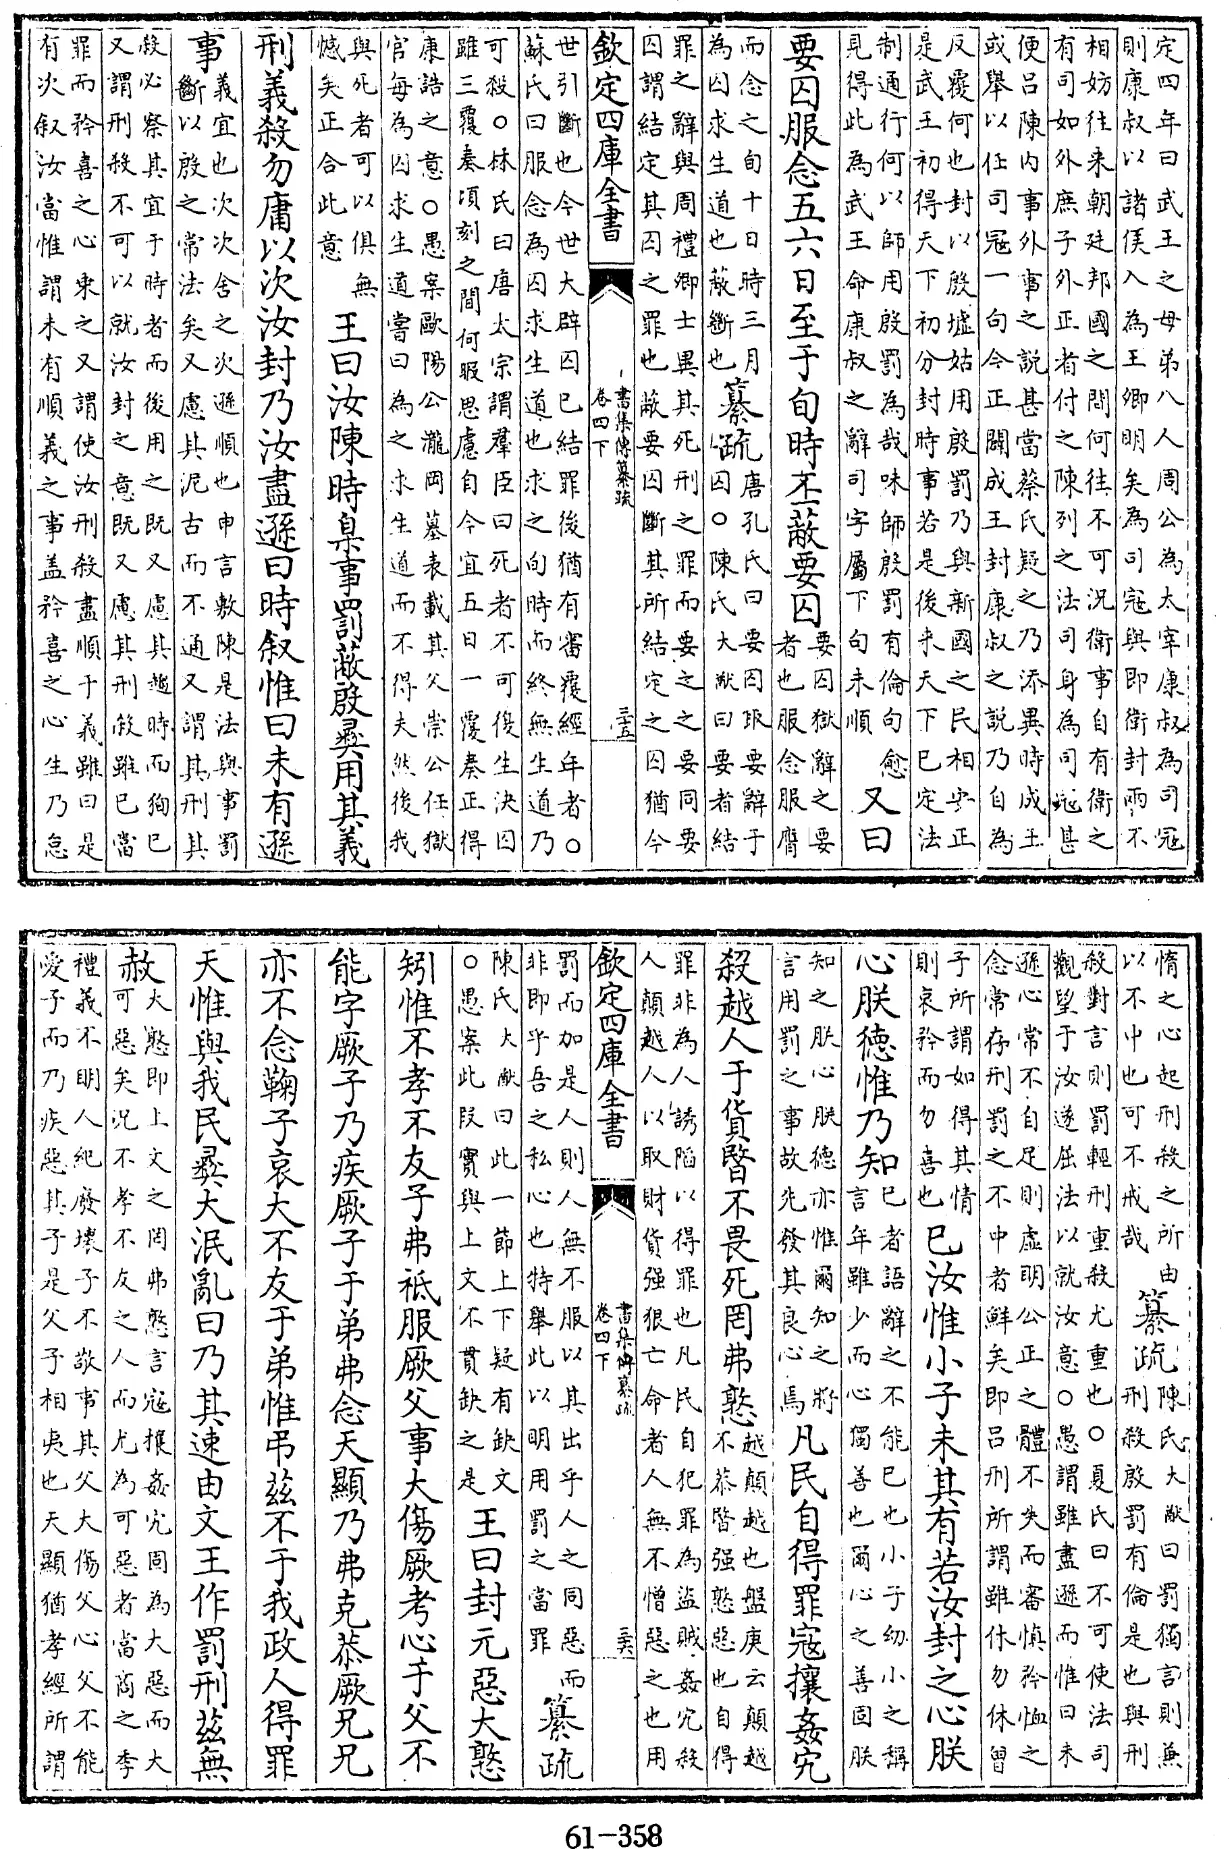 定四年曰武王之母弟八人周公為太宰康叔為司冦
則康叔以諸侯入為王卿明矣為司冦與即衛封兩不
相妨往来朝廷邦國之間何往不可况衛事自有衛之
有司如外庶子外正者付之陳列之法司身為司冦甚
便吕陳内事外事之説甚當蔡氏疑之乃添異時成王
或舉以任司冦一句今正闢成王封康叔之説乃自為
反覆何也封以殷墟姑用殷罰乃與新國之民相安正
是武王初得天下初分封時事若是後来天下已定法
制通行何以師用殷罰為哉味師殷罰有倫句愈
見得此為武王命康叔之辭司字屬下句未順
又曰
要囚服念五六日至于旬時丕蔽要囚
要囚獄辭之要
者也服念服膺
而念之旬十日時三月
為囚求生道也蔽斷也
纂疏
唐孔氏曰要囚取要辭于
囚○陳氏大猷曰要者結
罪之辭與周禮卿士異其死刑之罪而要之之要同要
囚謂結定其囚之罪也蔽要囚斷其所結定之囚猶今
欽定四庫全書
書集傳纂疏
卷四下
三五
世引斷也今世大辟囚已結罪後猶有審覆經年者○
蘇氏曰服念為囚求生道也求之旬時而終無生道乃
可殺○林氏曰唐太宗謂羣臣曰死者不可復生決囚
雖三覆奏頃刻之間何暇思慮自今宜五日一覆奏正得
康誥之意○愚案歐陽公瀧岡墓表載其父崇公任獄
官每為囚求生道嘗曰為之求生道而不得夫然後我
與死者可以俱無
憾矣正合此意
王曰汝陳時臬事罰蔽殷彝用其義
刑義殺勿庸以次汝封乃汝盡遜曰時叙惟曰未有遜
事
義宜也次次舍之次遜順也申言敷陳是法與事罰
斷以殷之常法矣又慮其泥古而不通又謂其刑其
殺必察其宜于時者而後用之既又慮其趨時而狥已
又謂刑殺不可以就汝封之意既又慮其刑殺雖已當
罪而矜喜之心乘之又謂使汝刑殺盡順于義雖曰是
有次叙汝當惟謂未有順義之事盖矜喜之心生乃怠
惰之心起刑殺之所由
以不中也可不戒哉
纂疏
陳氏大猷曰罰獨言則兼
刑殺殷罰有倫是也與刑
殺對言則罰輕刑重殺尤重也○夏氏曰不可使法司
觀望于汝遂屈法以就汝意○愚謂雖盡遜而惟曰未
遜心常不自足則虚明公正之體不失而審慎矜恤之
念常存刑罰之不中者鮮矣即吕刑所謂雖休勿休曾
子所謂如得其情
則哀矜而勿喜也
已汝惟小子未其有若汝封之心朕
心朕德惟乃知
已者語辭之不能已也小子幼小之稱
言年雖少而心獨善也爾心之善固朕
知之朕心朕德亦惟爾知之將
言用罰之事故先發其良心焉
凡民自得罪寇攘姦宄
殺越人于貨暋不畏死罔弗憝
越顛越也盤庚云顛越
不恭暋强憝惡也自得
罪非為人誘陷以得罪也凡民自犯罪為盜賊姦宄殺
人顛越人以取財貨强狠亡命者人無不憎惡之也用
欽定四庫全書
書集傳纂疏
卷四下
三六
罰而加是人則人無不服以其出乎人之同惡而
非即乎吾之私心也特舉此以明用罰之當罪
纂疏
陳氏大猷曰此一節上下疑有缺文
○愚案此段實與上文不貫缺之是
王曰封元惡大憝
矧惟不孝不友子弗祗服厥父事大傷厥考心于父不
能字厥子乃疾厥子于弟弗念天顯乃弗克恭厥兄兄
亦不念鞠子哀大不友于弟惟弔兹不于我政人得罪
天惟與我民彝大泯亂曰乃其速由文王作罰刑兹無
赦
大憝即上文之罔弗憝言寇攘姦宄固為大惡而大
可惡矣况不孝不友之人而尤為可惡者當商之季
禮義不明人紀廢壊子不敬事其父大傷父心父不能
愛子而乃疾惡其子是父子相夷也天顯猶孝經所謂
61-358